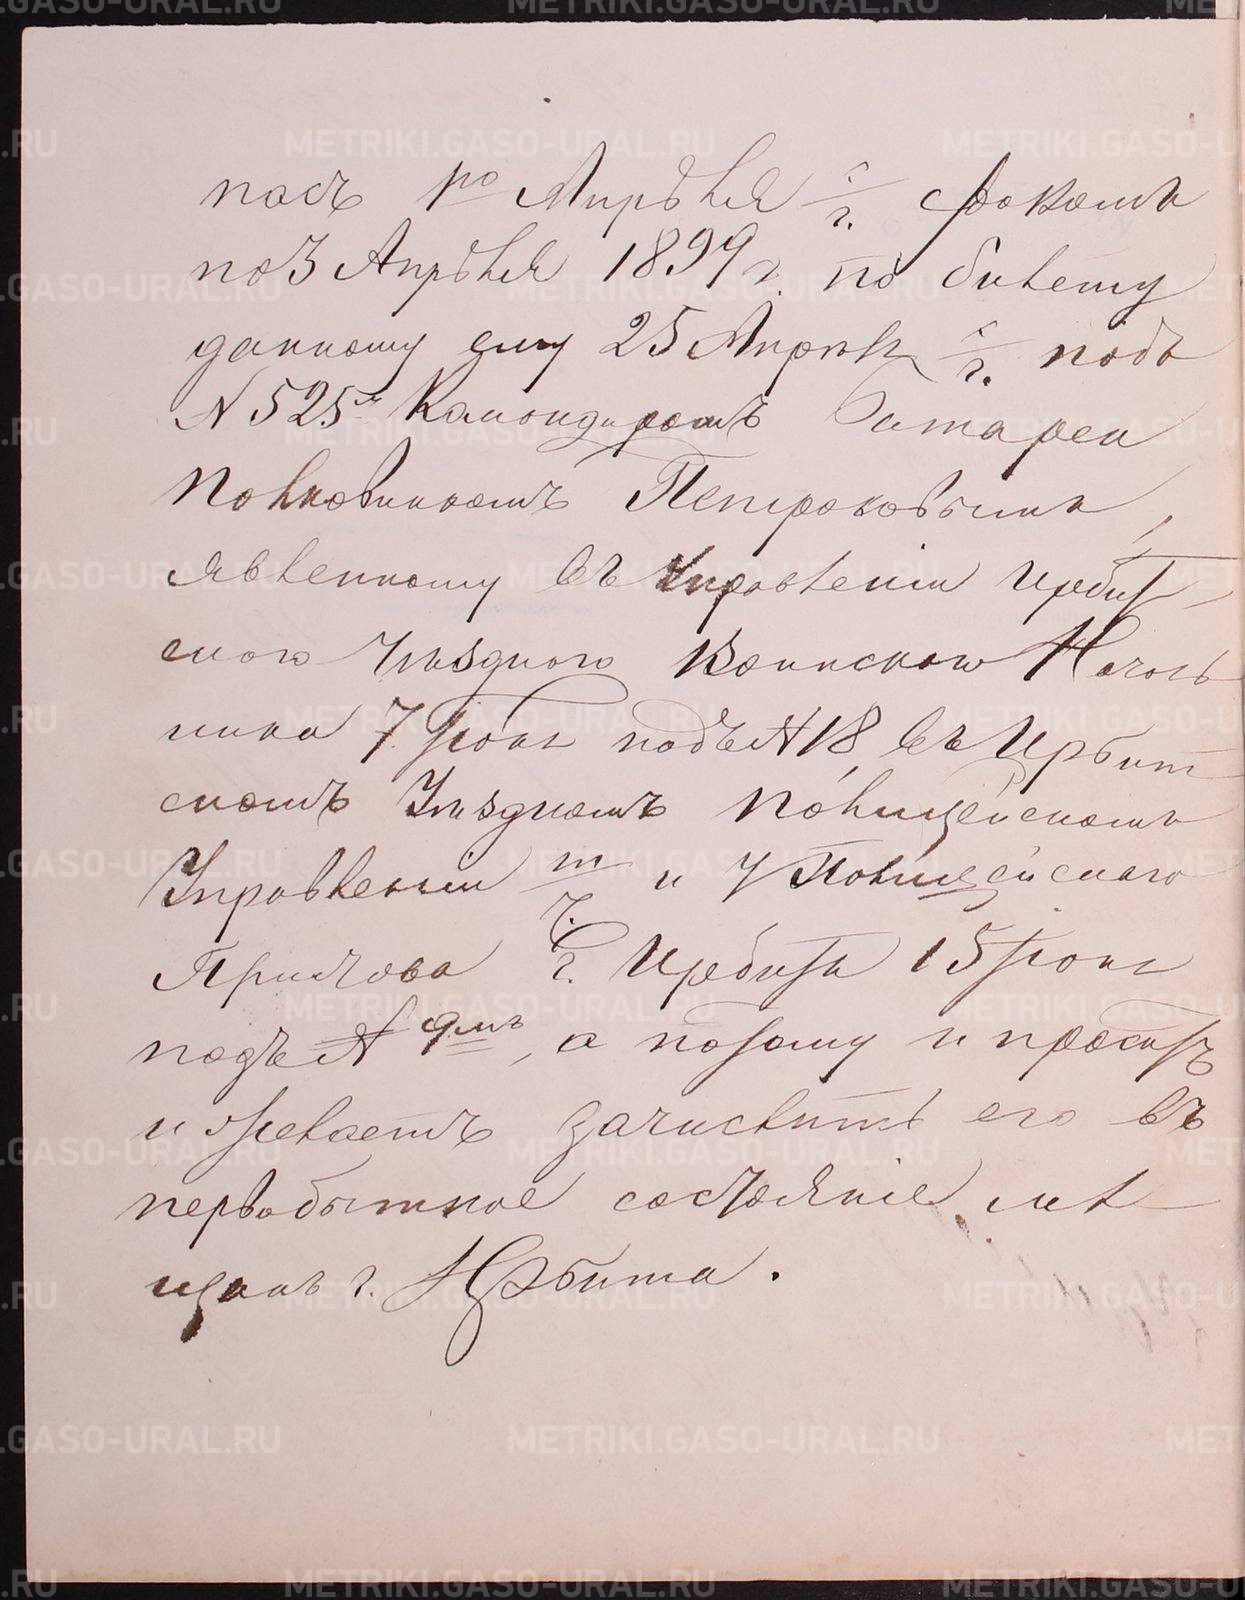 пасъ 1го Апрѣля с/г. срокомъ
по 3 Апрѣля 1899 г. по билету
данному ему 25 Апрѣля с/г. подъ
№ 525мъ Командиромъ Батареи
Полковникомъ Петраковымъ,
явленному въ Управленіи Ирбит-
скаго Уѣзднаго Воинскаго Началь
ника 7 Іюня подъ № 18, въ Ирбит
скомъ Уѣздномъ Полицейскомъ
Управленіи т/ч. и у Полицейскаго
Пристава г. Ирбити 15 Іюня
подъ № 9мъ, а потому и проситъ
и желаетъ зачислить его въ
первобытное состояніе мѣ
щанъ г. Ирбита.
METRIKI.GASO-URAL.RU